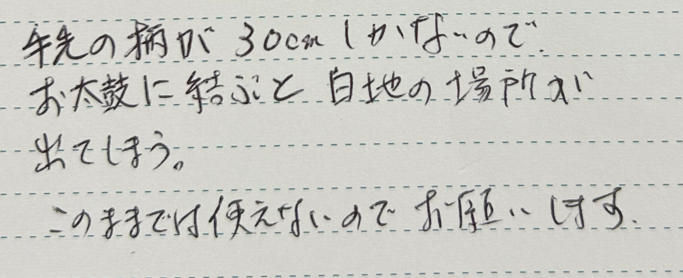 手先の柄が30cmしかないので、
お太鼓に結ぶと白地の場所が
出てしまう。
このままでは使えないのでお願いします。